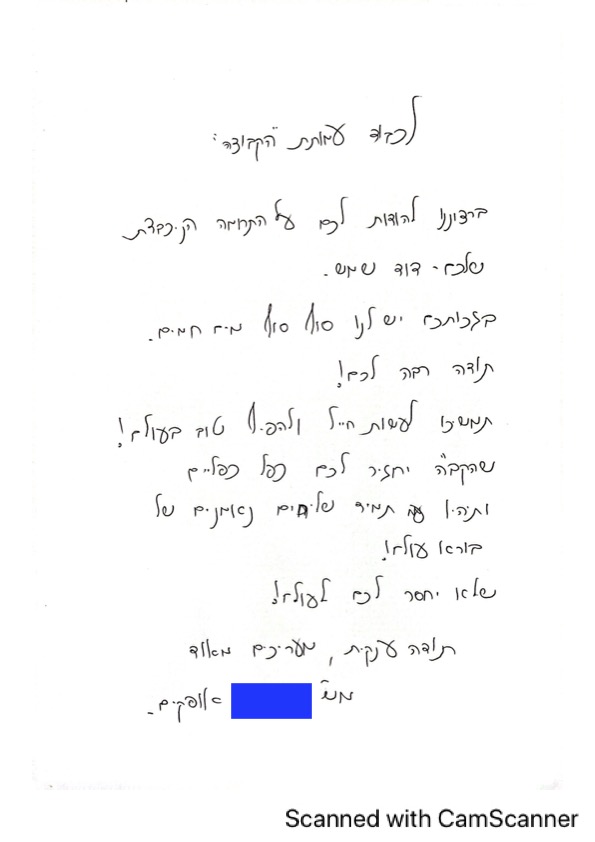 לכבוד עמותת "הקבוצה"
ברצוננו להודות לכם על התרומה הנכבדת
שלכם - דוד שמש.
בזכותכם יש לנו סוף סוף מים חמים.
תודה רבה לכם!
תמשכו לעשות חייל ולהפיץ טוב בעולם!
שהקב"ה יחזיר לכם כפל כפליים
ותהיו תמיד שליחים נאמנים של
בורא עולם!
שלא יחסר לכם לעולם!
תודה ענקית, מעריכים מאוד
מש' אופקים.
Scanned with CamScanner